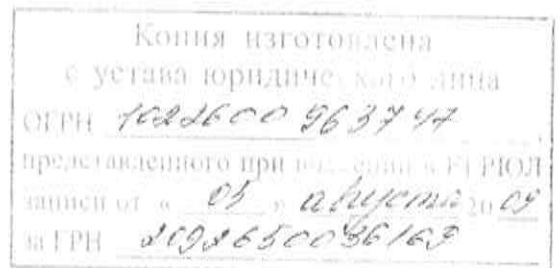 Копия изготовлена
с устава юридического лица
ОГРН 1022600963747
представленного при внесении в ЕГРЮЛ
записи от « 05 » августа 2009
за ГРН